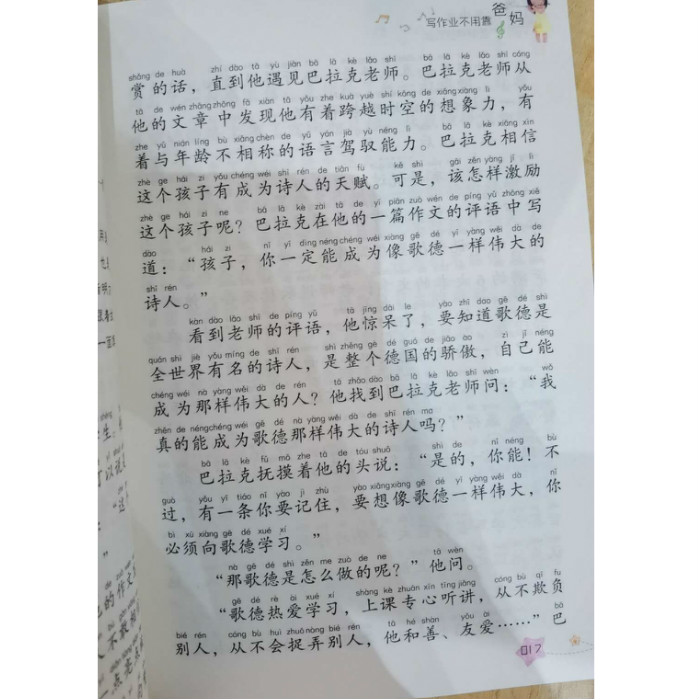 写作业不用靠爸妈
shǎng de huà zhí dào tā yù jiàn bā lā kè lǎo shī bā lā kè lǎo shī cóng
赏的话，直到他遇见巴拉克老师。巴拉克老师从
tā de wén zhāng zhōng fā xiàn tā yǒu zhe kuà yuè shí kōng de xiǎng xiàng lì yǒu
他的文章中发现他有着跨越时空的想象力，有
zhe yǔ nián líng bù xiāng chèn de yǔ yán jià yù néng lì bā lā kè xiāng xìn
着与年龄不相称的语言驾驭能力。巴拉克相信
zhè ge hái zi yǒu chéng wéi shī rén de tiān fù kě shì gāi zěn yàng jī lì
这个孩子有成为诗人的天赋。可是，该怎样激励
zhè ge hái zi ne bā lā kè zài tā de yì piān zuò wén de píng yǔ zhōng xiě
这个孩子呢？巴拉克在他的一篇作文的评语中写
dào hái zi nǐ yí dìng néng chéng wéi xiàng gē dé yí yàng wěi dà de
道：“孩子，你一定能成为像歌德一样伟大的
shī rén
诗人。”
kàn dào lǎo shī de píng yǔ tā jīng dāi le yào zhī dào gē dé shì
看到老师的评语，他惊呆了，要知道歌德是
quán shì jiè yǒu míng de shī rén shì zhěng gè dé guó de jiāo ào zì jǐ néng
全世界有名的诗人，是整个德国的骄傲，自己能
chéng wéi nà yàng wěi dà de rén tā zhǎo dào bā lā kè lǎo shī wèn wǒ
成为那样伟大的人？他找到巴拉克老师问：“我
zhēn de néng chéng wéi gē dé nà yàng wěi dà de shī rén ma
真的能成为歌德那样伟大的诗人吗？”
bā lā kè fǔ mō zhe tā de tóu shuō shì de nǐ néng bú
巴拉克抚摸着他的头说：“是的，你能！不
guò yǒu yì tiáo nǐ yào jì zhù yào xiǎng xiàng gē dé yí yàng wěi dà nǐ
过，有一条你要记住，要想像歌德一样伟大，你
bì xū xiàng gē dé xué xí
必须向歌德学习。”
nà gē dé shì zěn me zuò de ne tā wèn
“那歌德是怎么做的呢？”他问。
gē dé rè ài xué xí shàng kè zhuān xīn tīng jiǎng cóng bù qī fu
“歌德热爱学习，上课专心听讲，从不欺负
bié rén cóng bú huì zhuō nòng bié rén tā hé shàn yǒu ài bā
别人，从不会捉弄别人，他和善、友爱……”巴
017